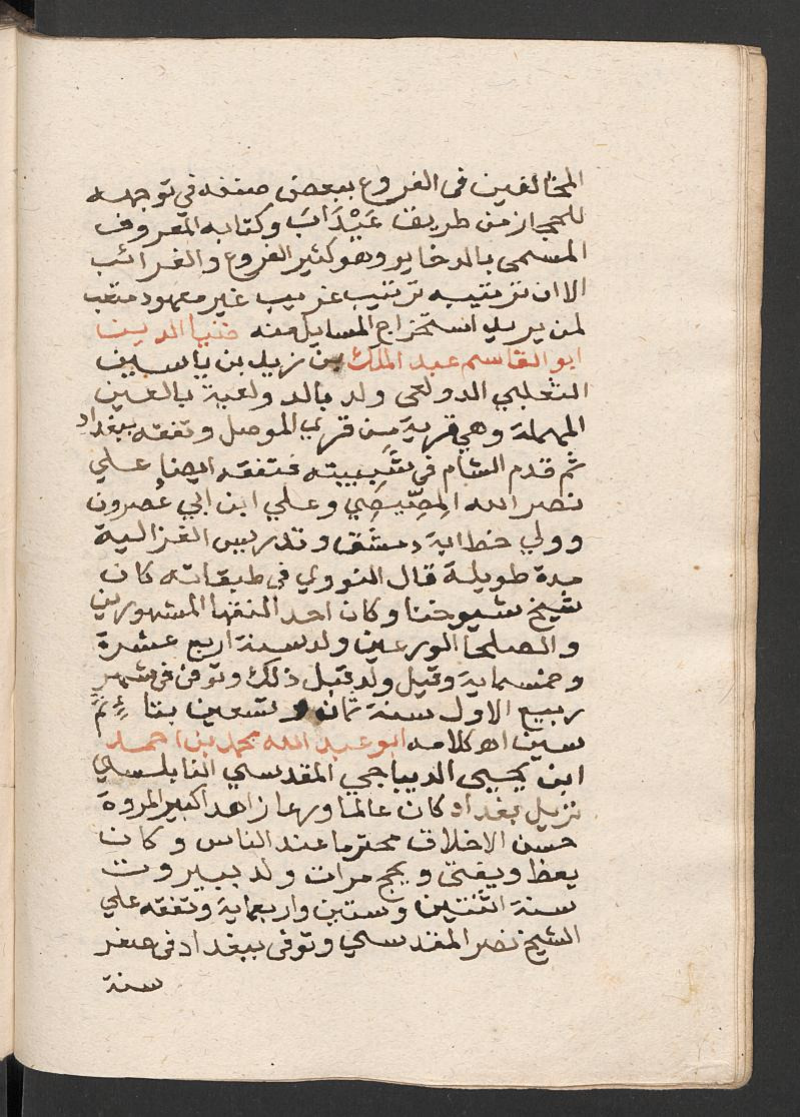 المخالفين فى الفروع ببعض صنفه في توجهه
للحجاز من طريق عَيْذَابَ وكتابه المعروف
المسمى بالدخاير وهو كثير الفروع والغرائب
الا ان ترتيبه ترتيب غريب غير معهود متعب
لمن يريد استخراج المسايل منه ضيا الدين
ابو القاسم عبد الملك بن زيد بن ياسين
التغلبي الدولعى ولد بالدولعية بالعين
المهملة وهي قرية من قري الموصل وتفقه ببغداد
ثم قدم الشام في شبيبته فتفقه ايضا علي
نصر الله المِصِّيصِي وعلي ابن ابي عُصرون
وولي خطابة دمشق وتدريس الغزالية
مدة طويلة قال النووي فى طبقاته كان
شيخ شيوخنا وكان احد الفقها المشهورين
والصلحا الورعين ولد سنة اربع عشرة
وخمسماية وقيل ولد قبل ذلك وتوفى فى شهر
ربيع الاول سنة ثمان وتسعين بتاءٍ ثم
سين اهـ كلامه ابو عبد الله محمد بن احمد
ابن يحيى الديباجي المقدسي النابلسي
نزيل بغداد كان عالما ورعا زاهدا كبير المروة
حسن الاخلاق محترما عند الناس وكان
يعظ ويفتى ويحج مرات ولد ببيروت
سنة اثنتين وستين واربعماية وتفقه علي
الشيخ نصر المقدسي وتوفى ببغداد فى صفر
سنة